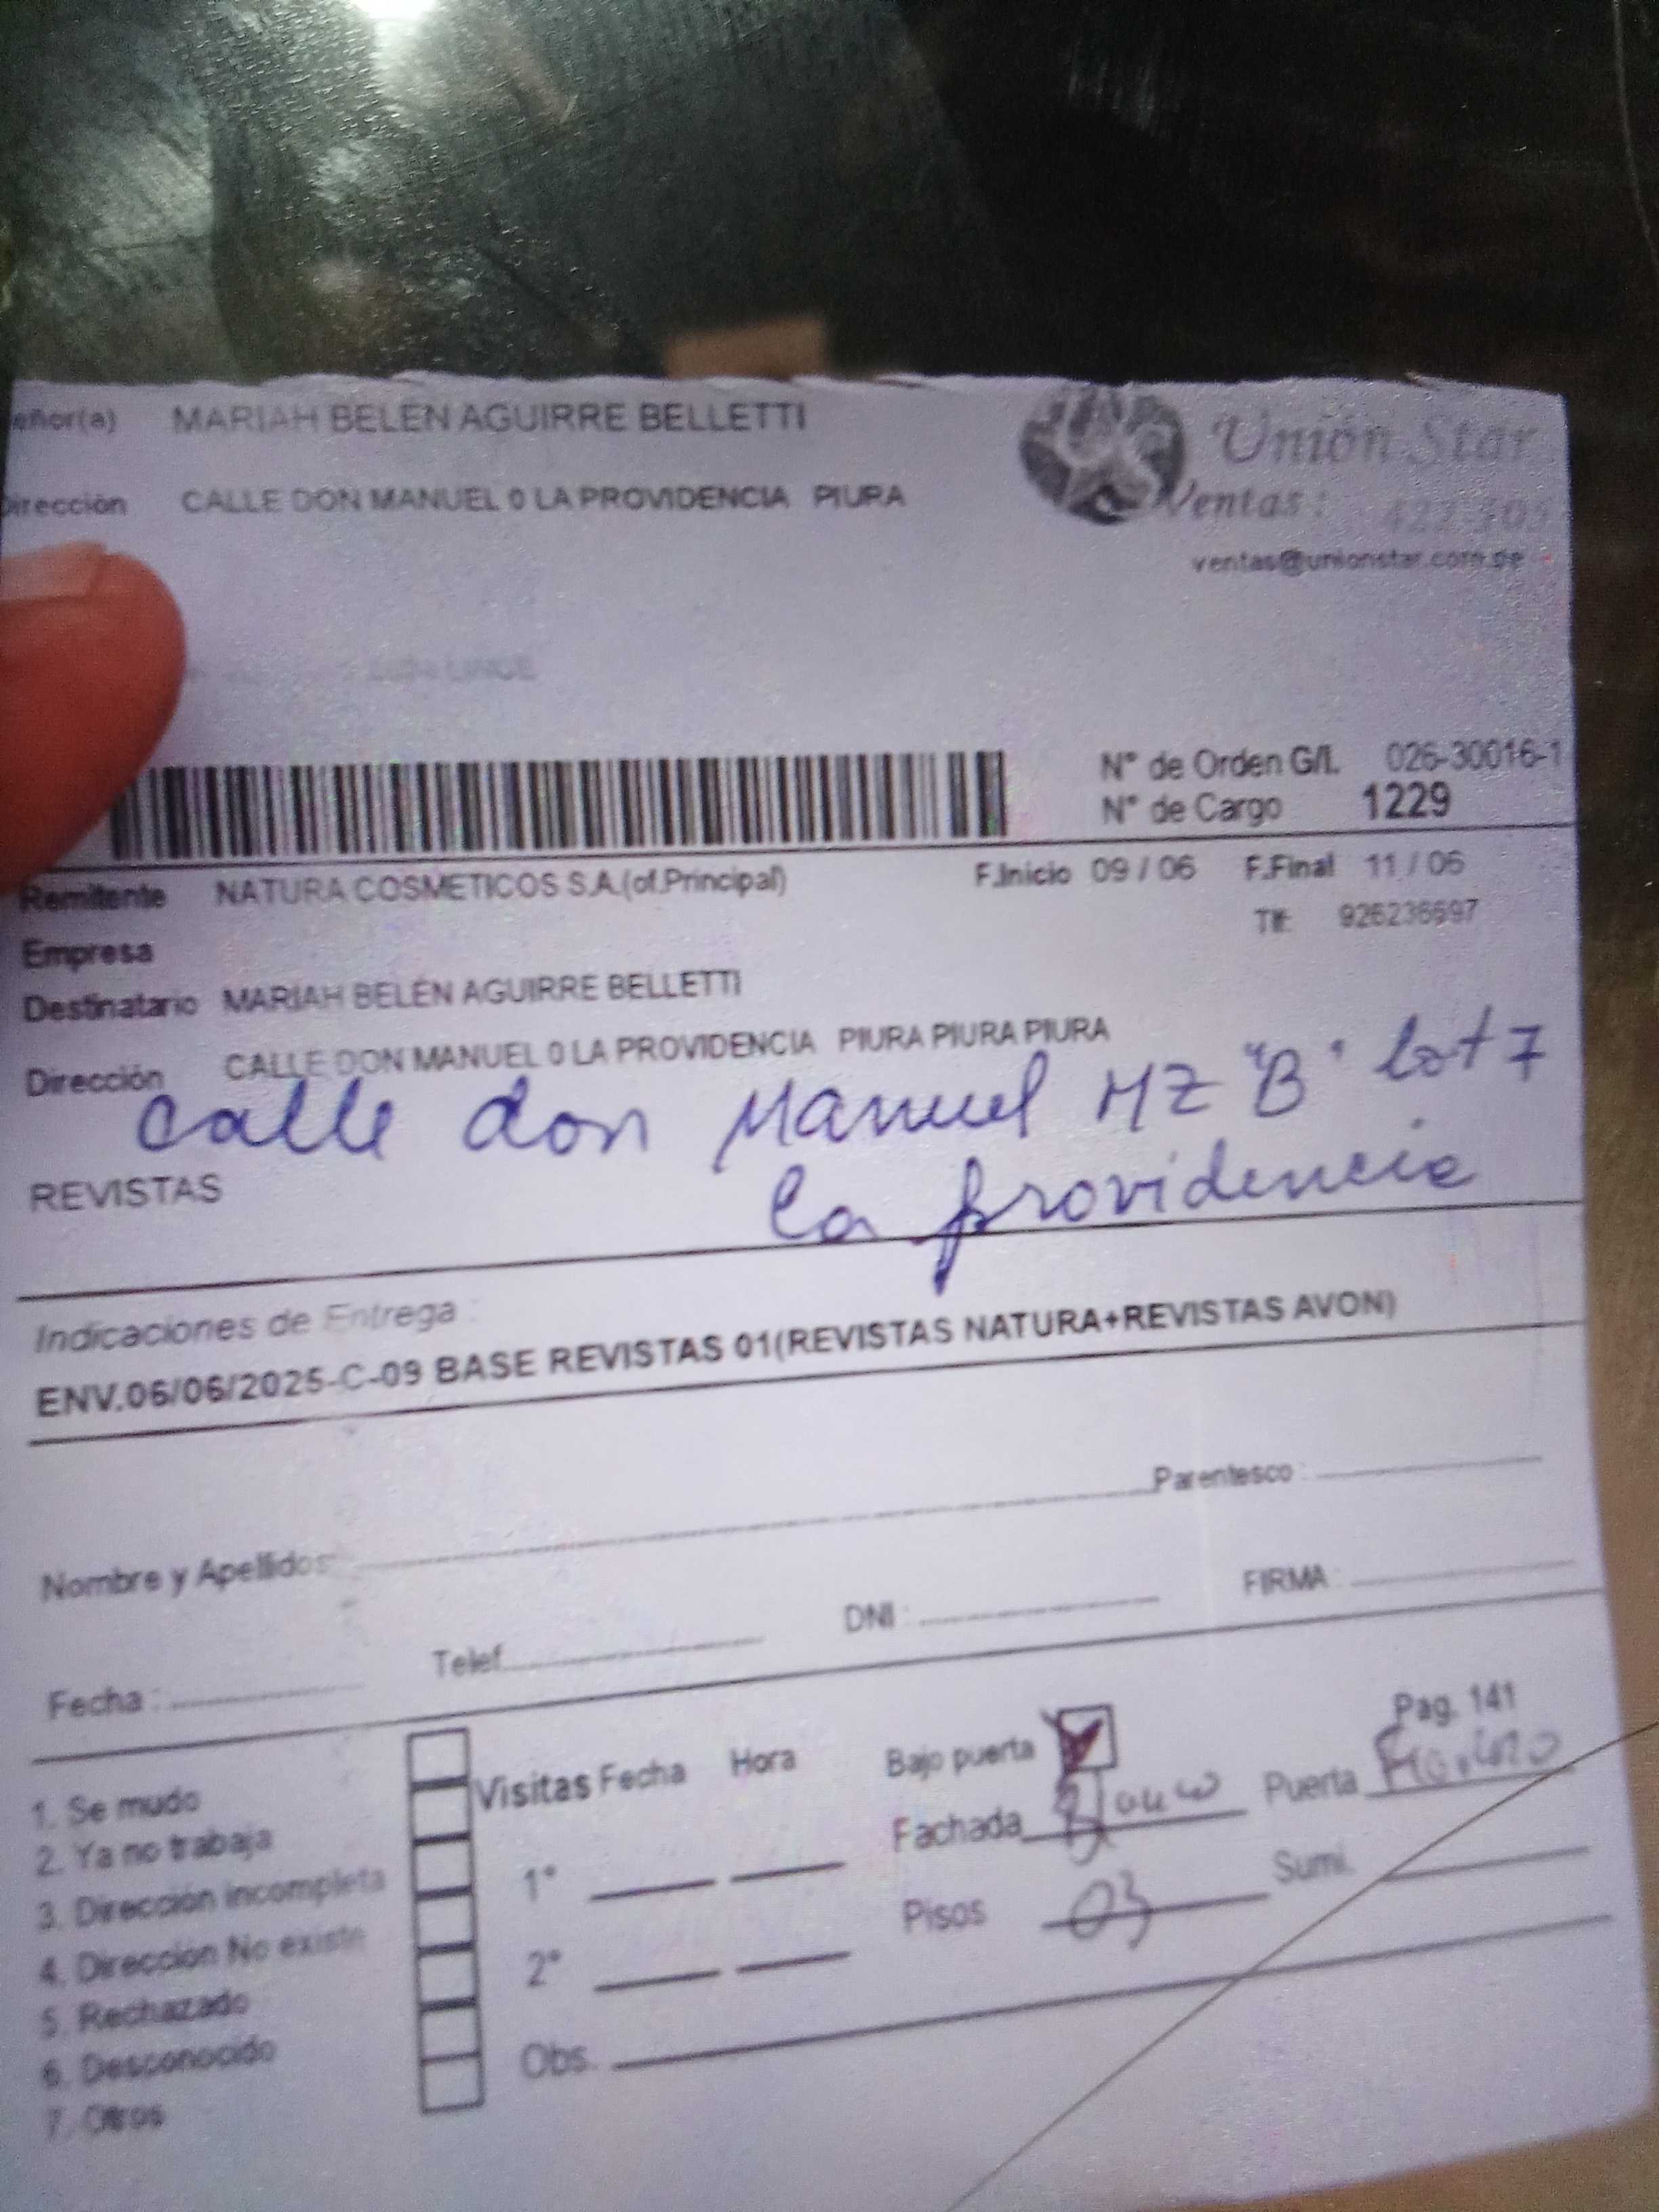 eñor(a) MARIAH BELÉN AGUIRRE BELLETTI
Dirección CALLE DON MANUEL 0 LA PROVIDENCIA PIURA
Unión Star
Ventas: 422-305
ventas@unionstar.com.pe
N° de Orden G/L 026-30016-1
N° de Cargo 1229
Remitente NATURA COSMETICOS S.A.(of.Principal) F.Inicio 09 / 06 F.Final 11 / 06
Tlf: 926236697
Empresa
Destinatario MARIAH BELÉN AGUIRRE BELLETTI
Dirección CALLE DON MANUEL 0 LA PROVIDENCIA PIURA PIURA PIURA
Calle don Manuel MZ "B" Lot 7
REVISTAS
la providencia
Indicaciones de Entrega :
ENV.06/06/2025-C-09 BASE REVISTAS 01(REVISTAS NATURA+REVISTAS AVON)
Nombre y Apellidos Parentesco :
Fecha : Telef. DNI : FIRMA :
Pag. 141
Visitas Fecha Hora Bajo puerta
1. Se mudo
2. Ya no trabaja
3. Dirección incompleta
4. Dirección No existe
5. Rechazado
6. Desconocido
7. Otros
1°
2°
Fachada Blanco Puerta
Pisos 03 Sumi.
Obs.